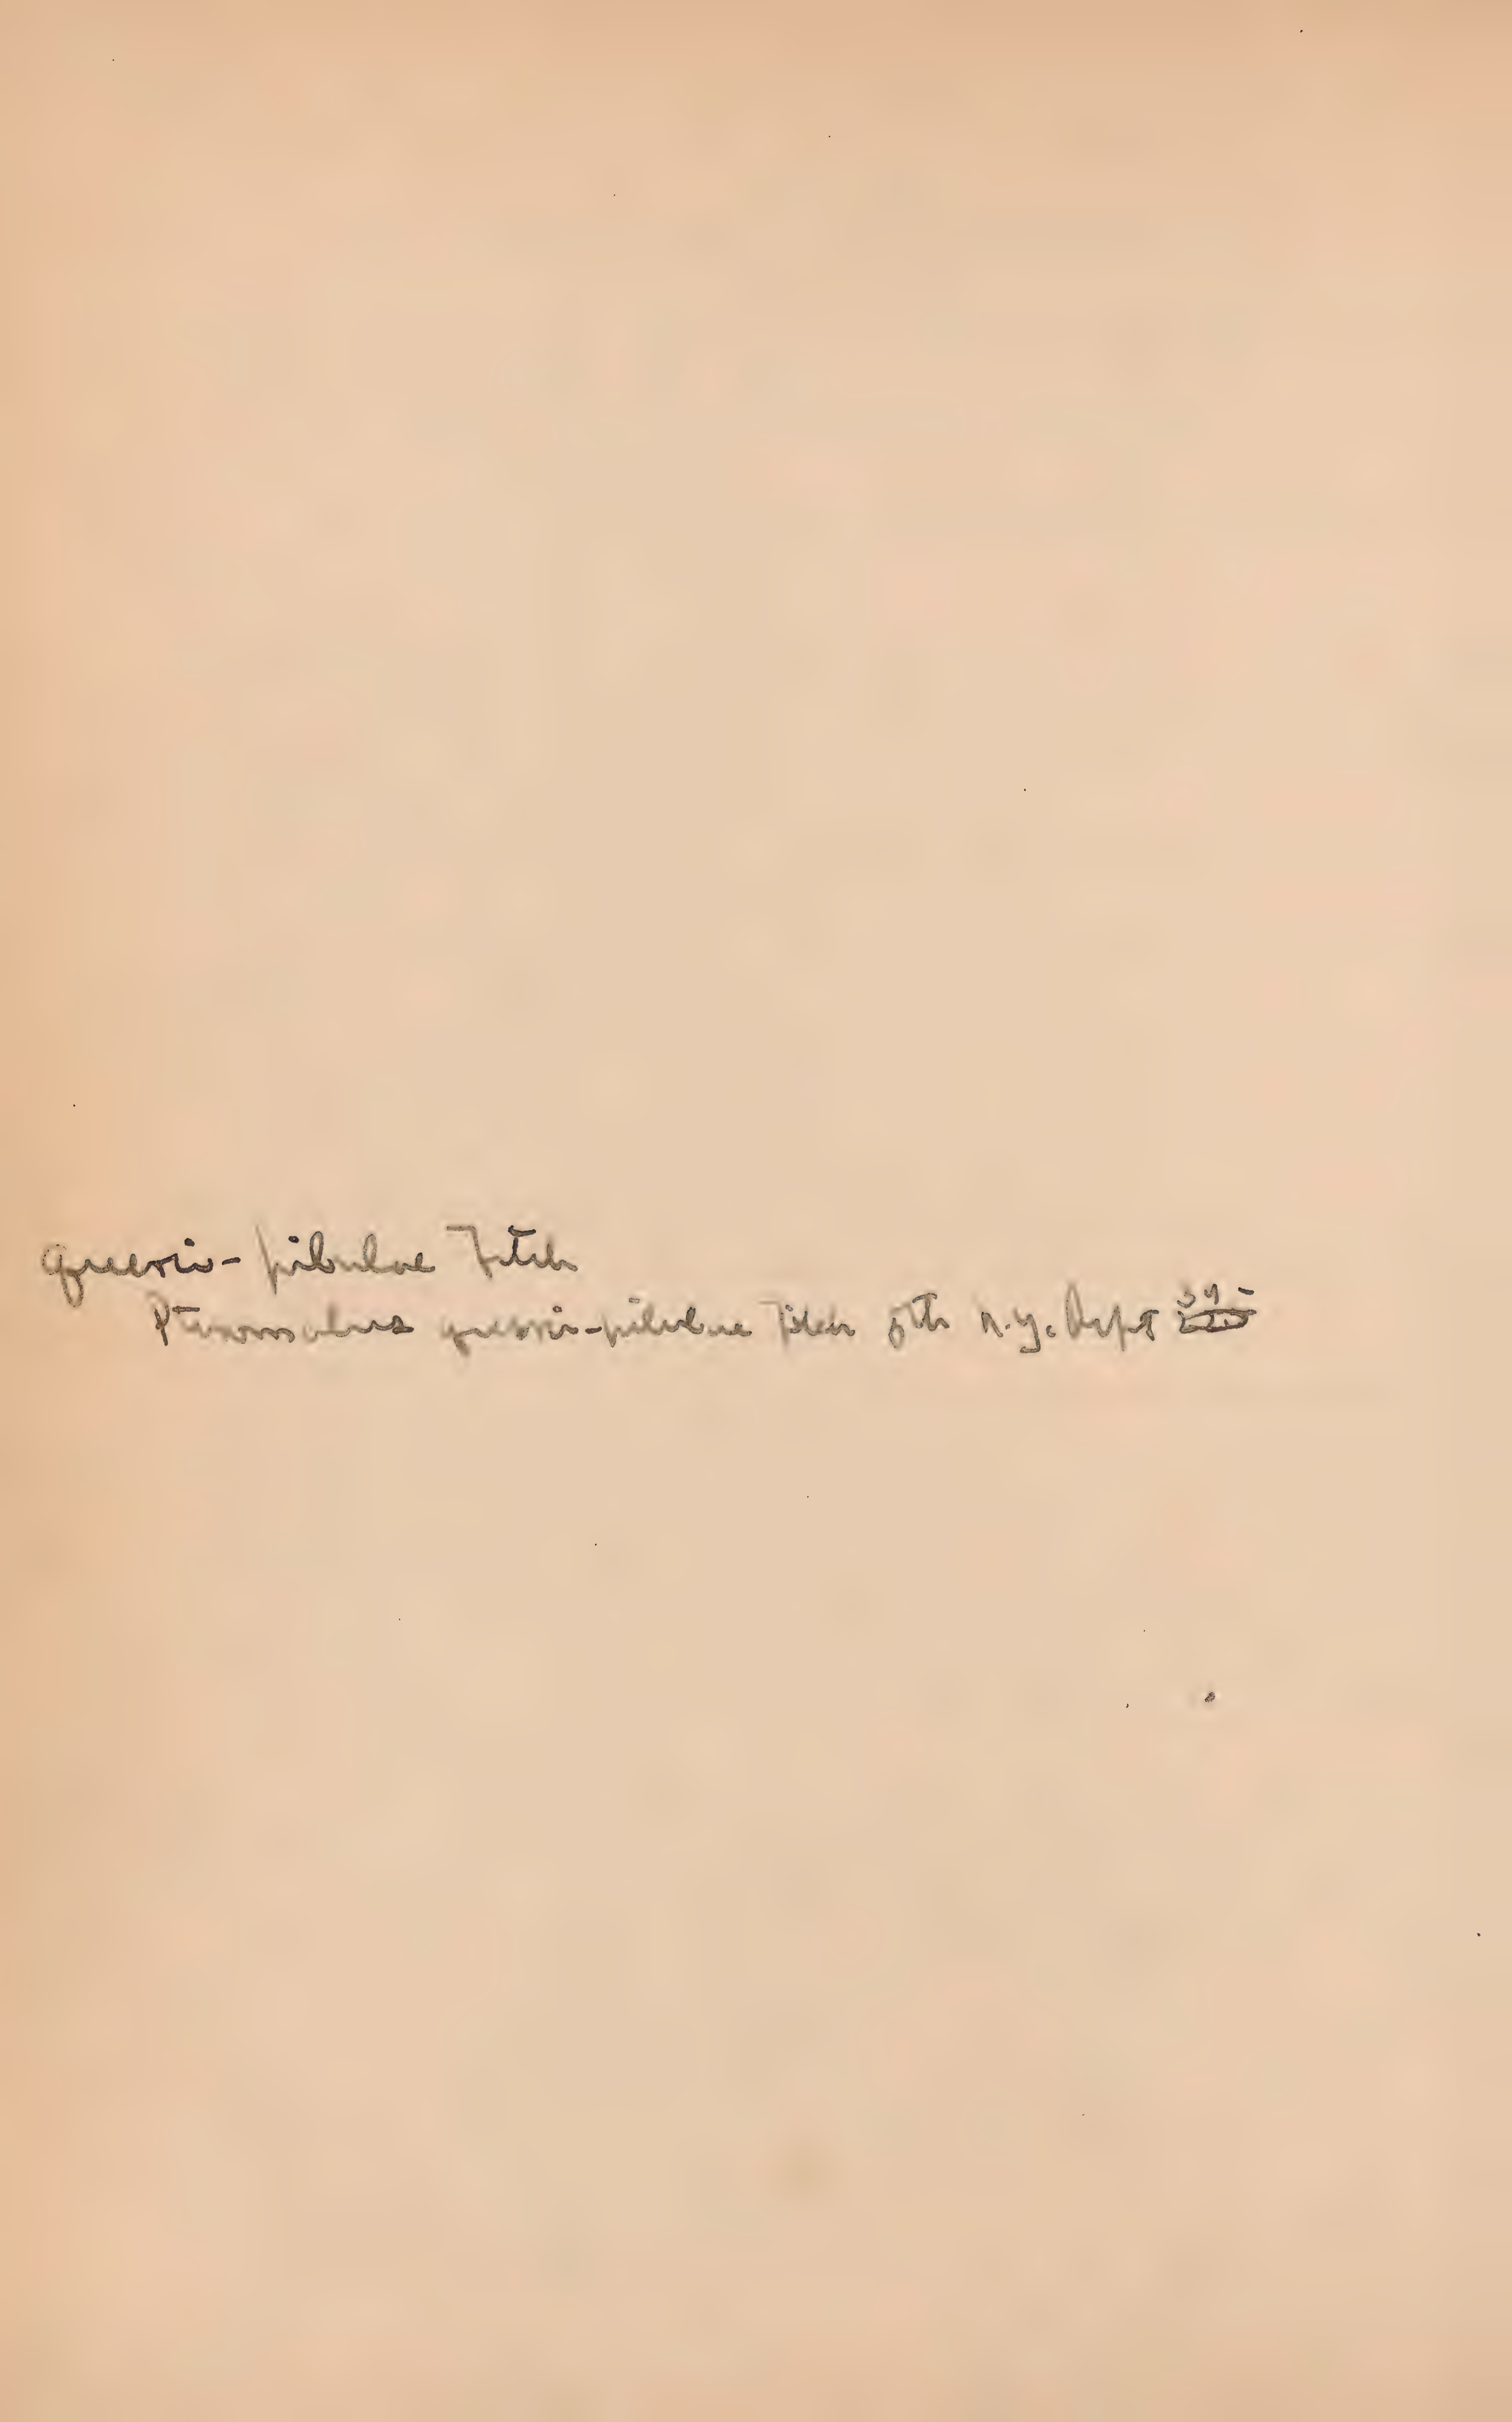 querci-pilulae Fitch
Pteromalus querci-pilulae Fitch 5th N.Y. Rept